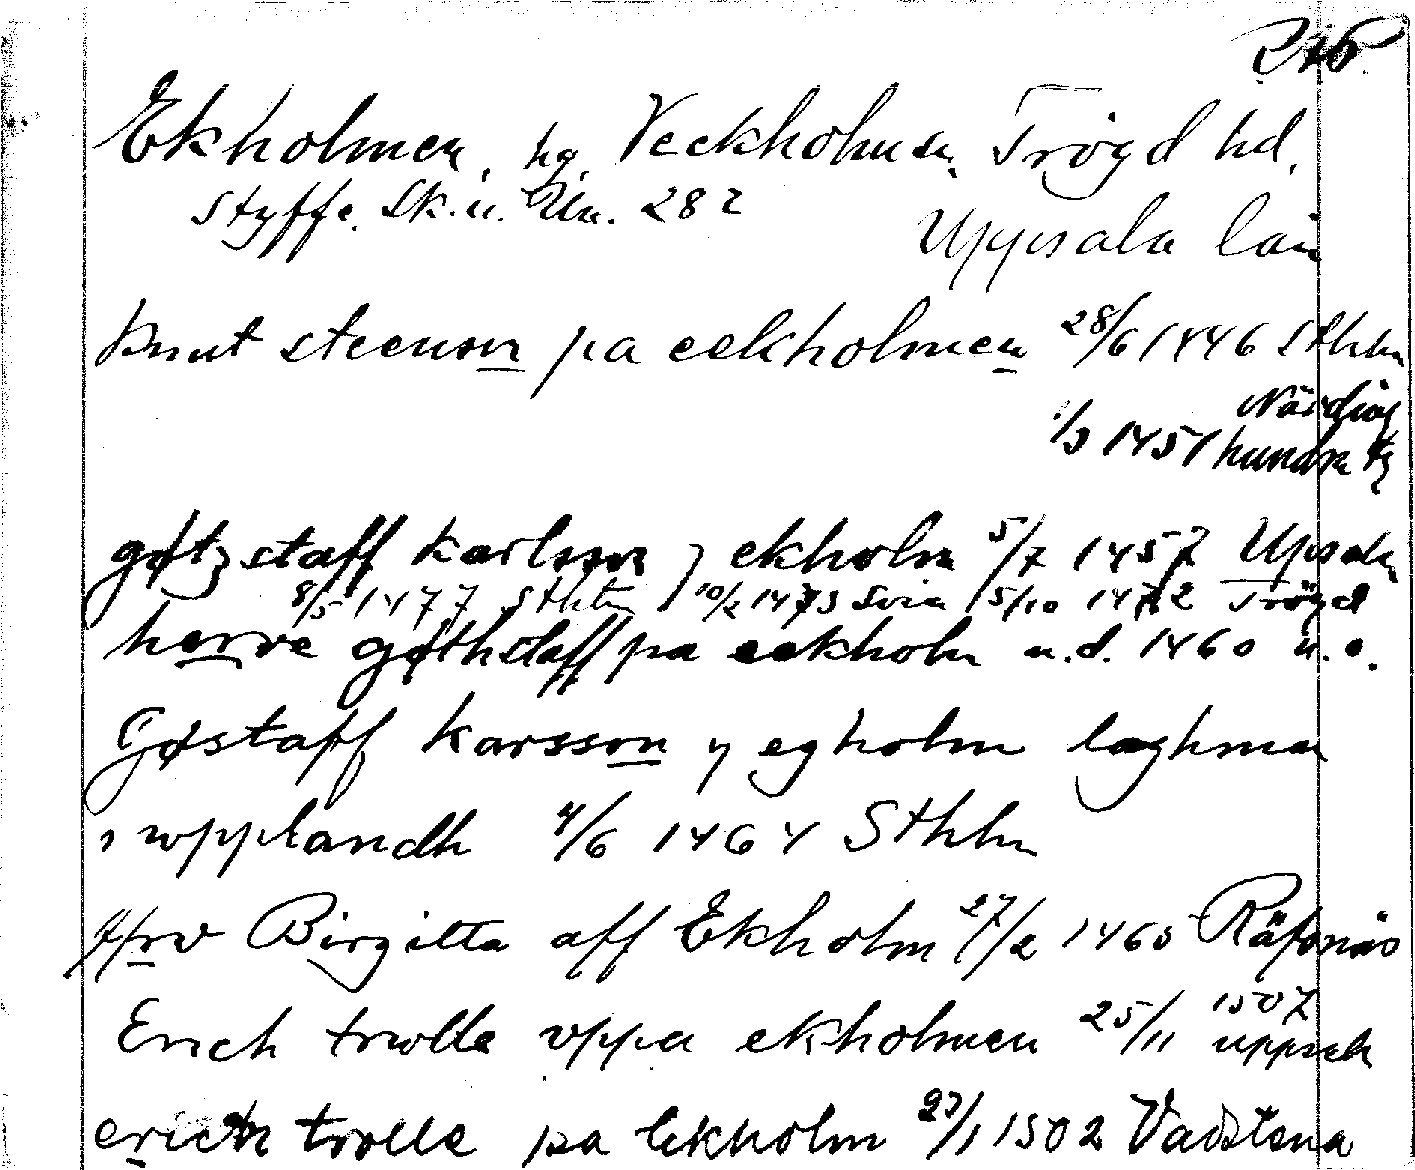 Ekholmen, hg, Veckholms sn, Trögd hd,
Styffe. Sk. u. Un. 282
Uppsala län
knut steenson pa eekholmen 28/6 1446 Sthlm
Närding
1/3 1451 hundra tg
gøtzstaff karlsson j ekholm 5/7 1457 Upsala
8/5 1477 Sthlm 10/2 1473 Svia 15/10 1472 Trögd
herre gøthstaff pa eekholm u.d. 1460 u.o.
Gøstaff karsson y egholm laghman
i wpplandh 4/6 1464 Sthlm
ffrv Birgitta aff Ekholm 27/2 1465 Räfsnäs
1507
Erich trolle vppa ekholmen 25/11 uppsala
erich trolle pa Ekholm 23/1 1502 Vadstena